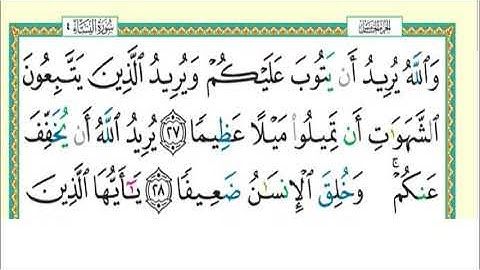 سورة النساء ٤
الجزء الخامس
وَٱللَّهُ يُرِيدُ أَن يَتُوبَ عَلَيْكُمْ وَيُرِيدُ ٱلَّذِينَ يَتَّبِعُونَ
ٱلشَّهَوَٰتِ أَن تَمِيلُوا۟ مَيْلًا عَظِيمًا ٢٧ يُرِيدُ ٱللَّهُ أَن يُخَفِّفَ
عَنكُمْ ۚ وَخُلِقَ ٱلْإِنسَٰنُ ضَعِيفًا ٢٨ يَٰٓأَيُّهَا ٱلَّذِينَ